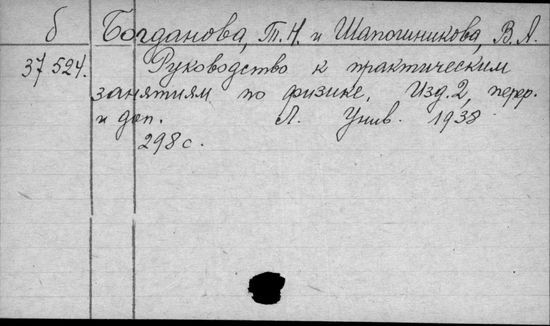 б Богданова, Т.Н. и Шапошникова, В.А.
37 524. Руководство к практическим
занятиям по физике. Изд.2, перер.
и доп. Л. Унив. 1938
298 с.